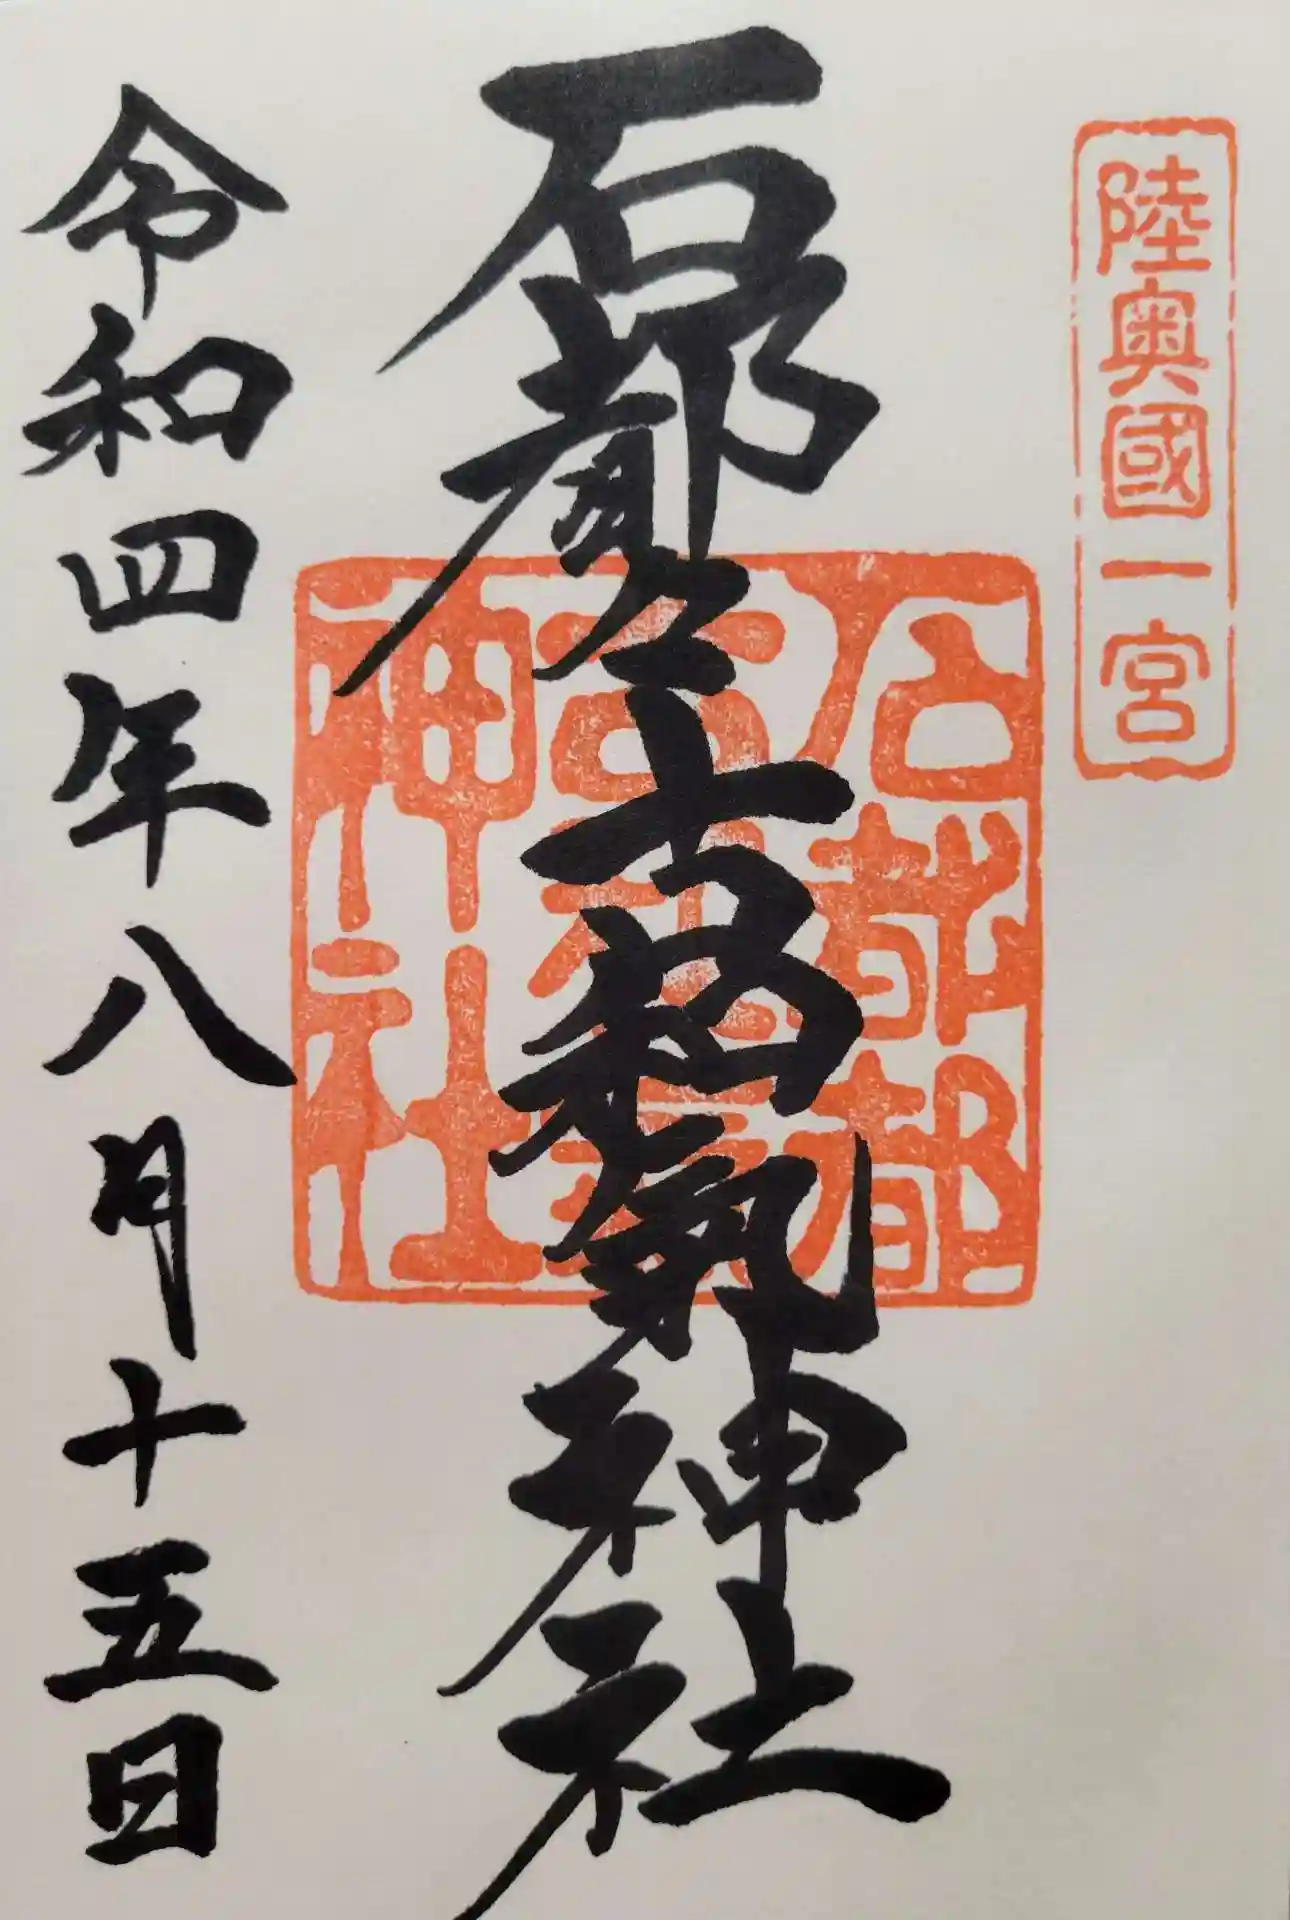 陸奥國一宮
石都々古和氣神社
石都都
古和氣
神社
令和四年八月十五日